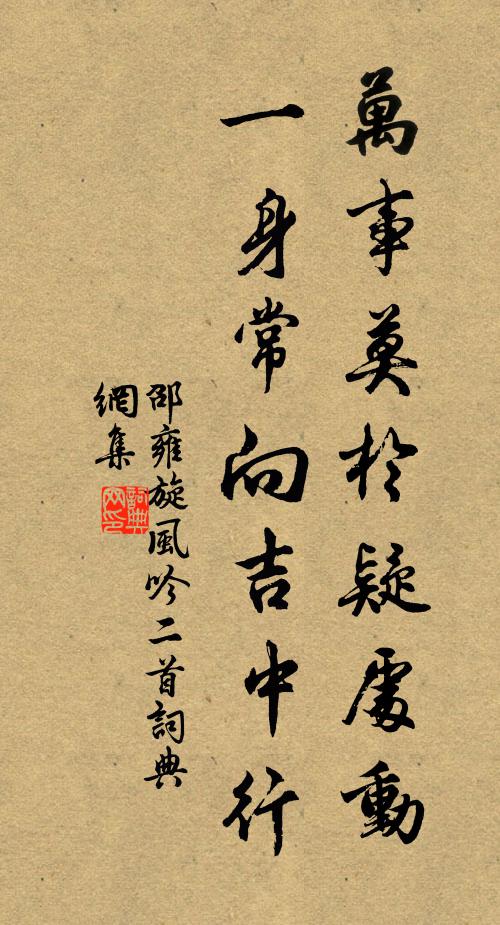 萬事莫於疑處動
一身常向吉中行
邵雍旋風吟二首詞典
網集
詞典
网印